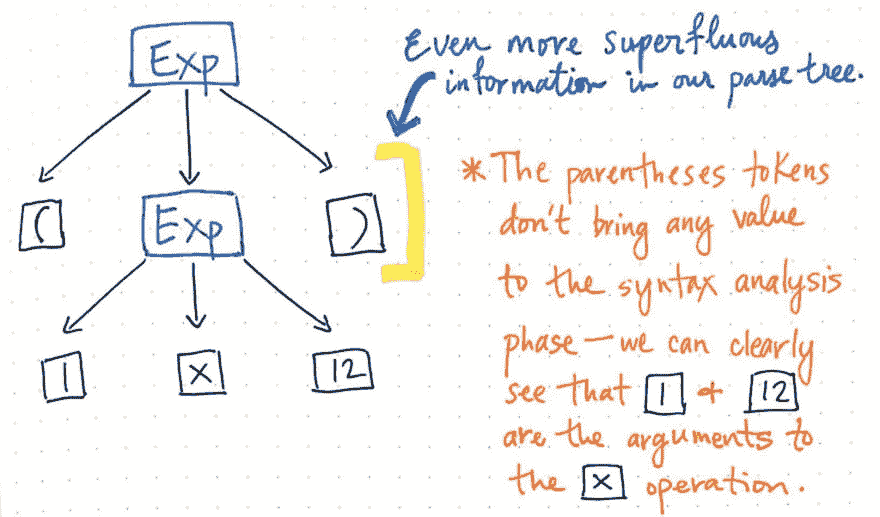 Exp
Even more superfluous
information in our parse tree.
( Exp )
1 x 12
* The parentheses tokens
don't bring any value
to the syntax analysis
phase — we can clearly
see that 1 + 12
are the arguments to
the x operation.